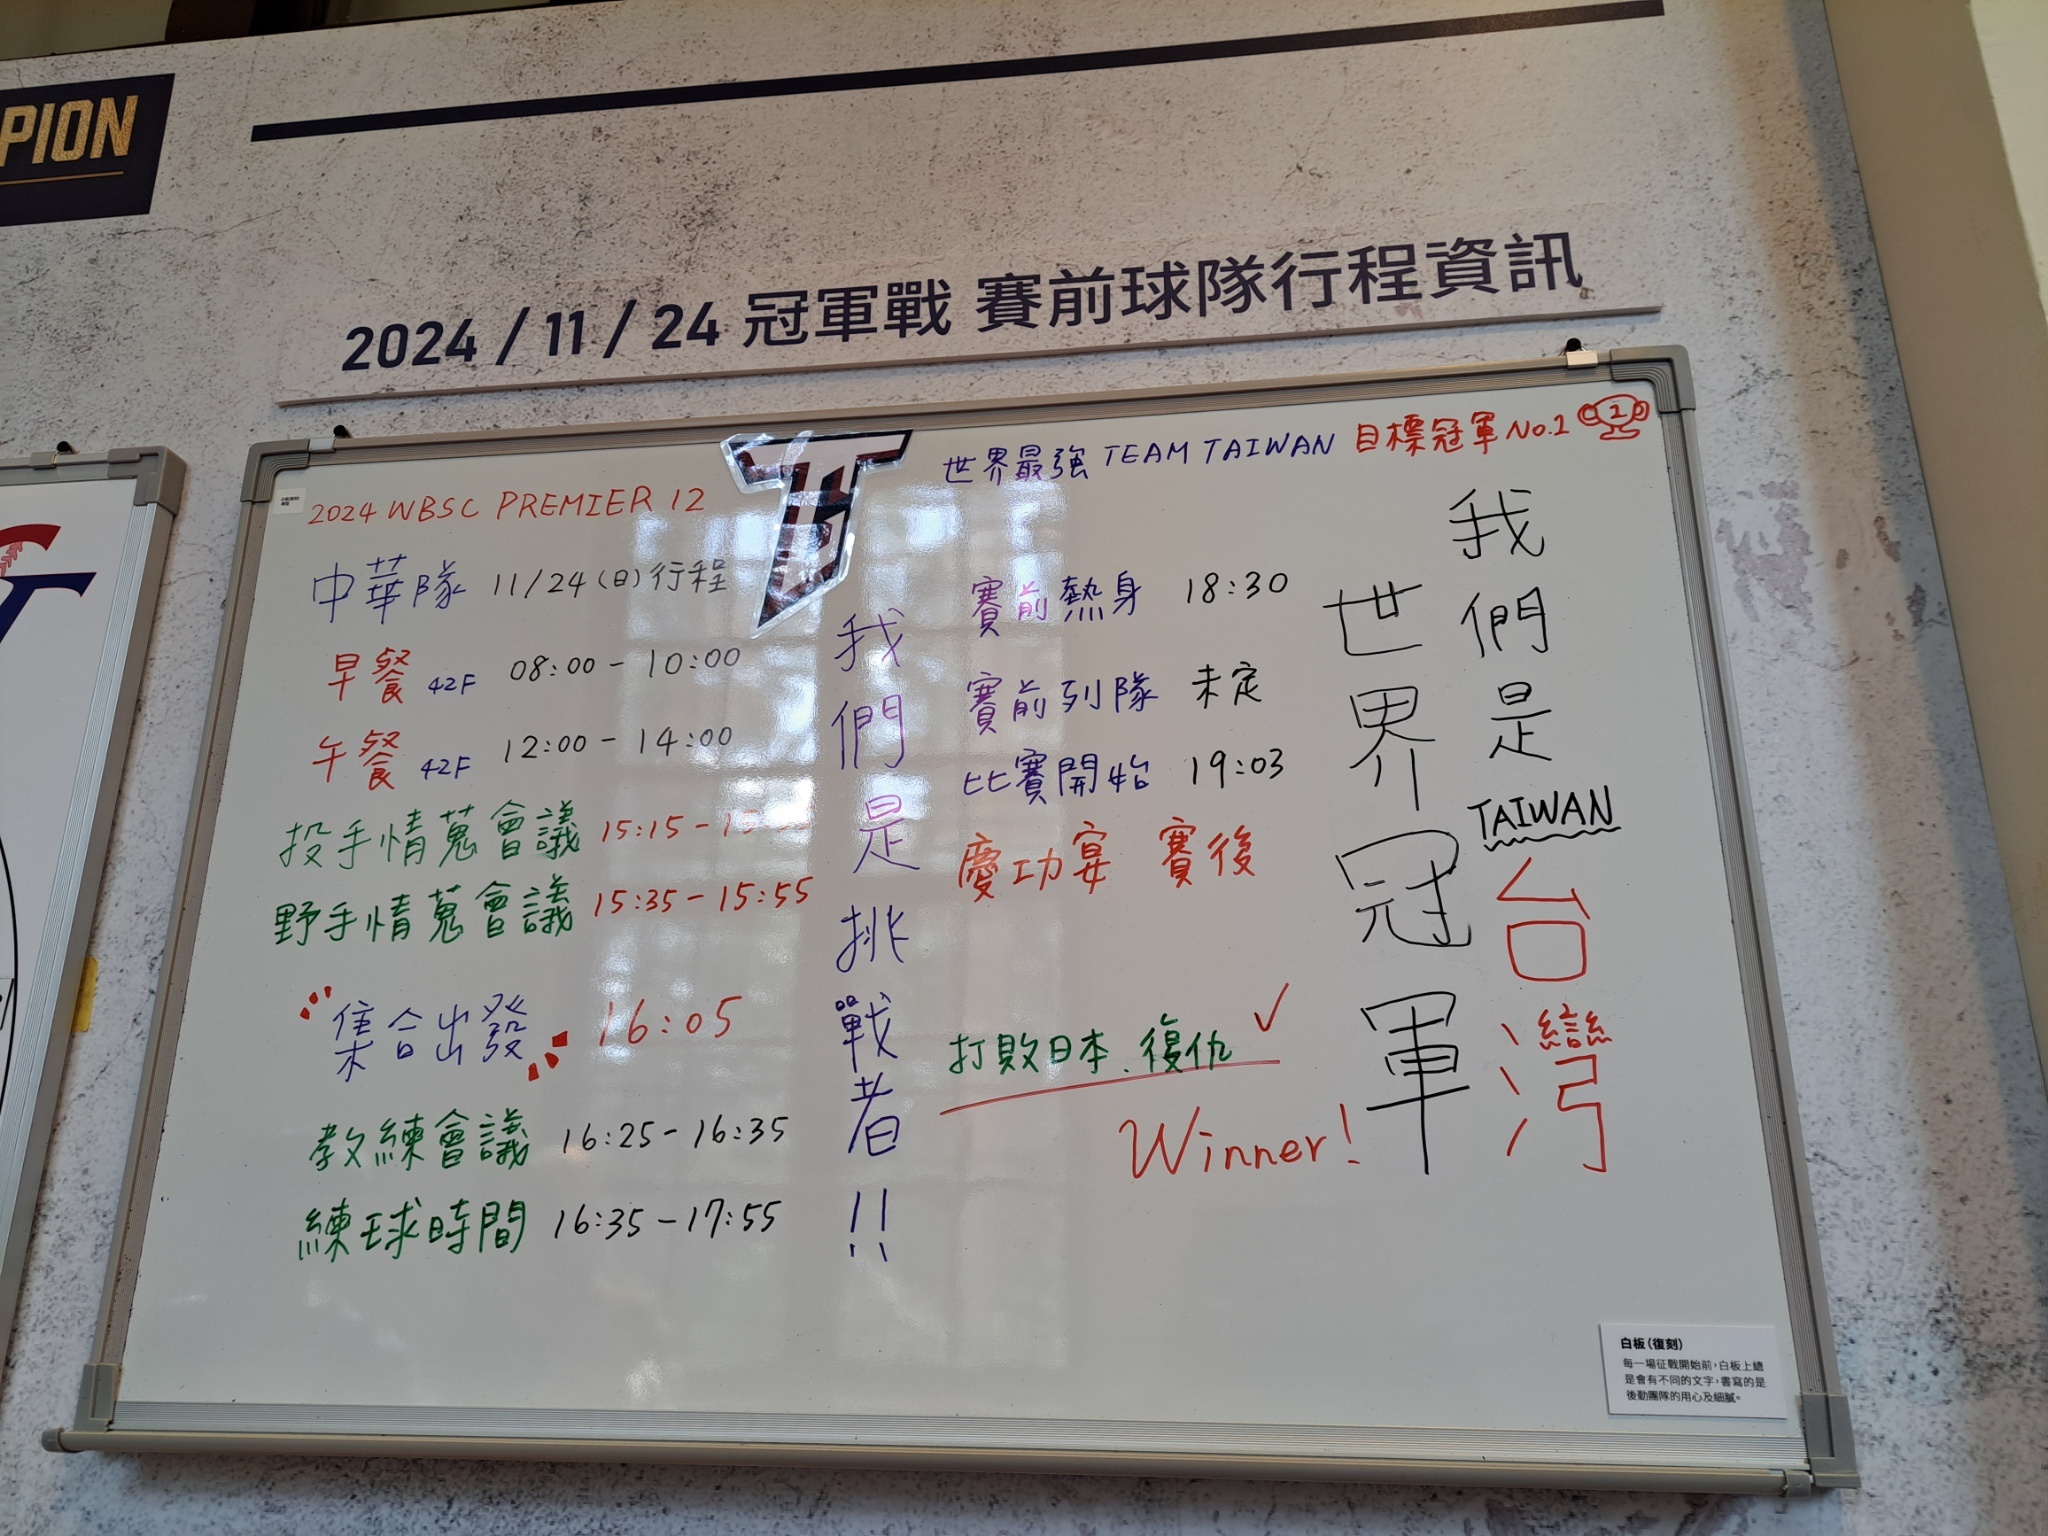 PION
2024 / 11 / 24 冠軍戰 賽前球隊行程資訊
2024 WBSC PREMIER 12
中華隊 11/24(日)行程
早餐 42F 08:00 - 10:00
午餐 42F 12:00 - 14:00
投手情蒐會議 15:15 -
野手情蒐會議 15:35 - 15:55
集合出發 16:05
教練會議 16:25 - 16:35
練球時間 16:35 - 17:55
我們是挑戰者!!
世界最強 TEAM TAIWAN 目標冠軍 No.1
1
賽前熱身 18:30
賽前列隊 未定
比賽開始 19:03
慶功宴 賽後
打敗日本.復仇 ✓
Winner!
我們是TAIWAN台灣
世界冠軍
白板(復刻)
每一場征戰開始前,白板上總
是會有不同的文字,書寫的是
後勤團隊的用心及細膩。